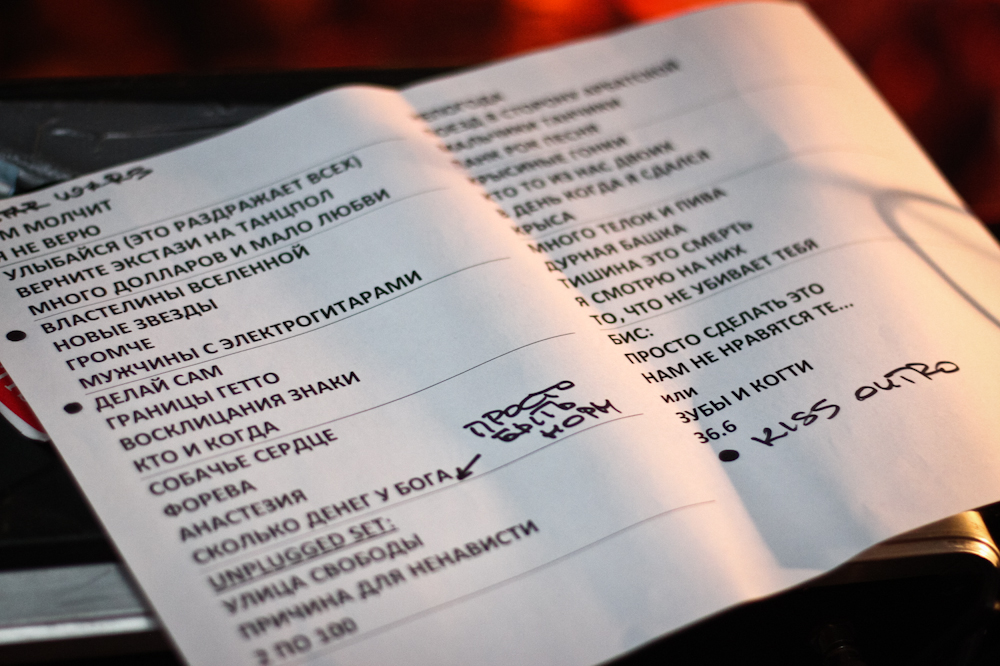 WARS
М МОЛЧИТ
Я НЕ ВЕРЮ
УЛЫБАЙСЯ (ЭТО РАЗДРАЖАЕТ ВСЕХ)
ВЕРНИТЕ ЭКСТАЗИ НА ТАНЦПОЛ
МНОГО ДОЛЛАРОВ И МАЛО ЛЮБВИ
ВЛАСТЕЛИНЫ ВСЕЛЕННОЙ
НОВЫЕ ЗВЕЗДЫ
ГРОМЧЕ
МУЖЧИНЫ С ЭЛЕКТРОГИТАРАМИ
ДЕЛАЙ САМ
ГРАНИЦЫ ГЕТТО
ВОСКЛИЦАНИЯ ЗНАКИ
КТО И КОГДА
СОБАЧЬЕ СЕРДЦЕ
ФОРЕВА
АНАСТЕЗИЯ
ПРОСТО
БЫТЬ
НОРМ
СКОЛЬКО ДЕНЕГ У БОГА
UNPLUGGED SET:
УЛИЦА СВОБОДЫ
ПРИЧИНА ДЛЯ НЕНАВИСТИ
2 ПО 100
В СТОРОНУ АРБАТСКОЙ
РОК ПЕСНЯ
КРЫСИНЫЕ ГОНКИ
ТО ИЗ НАС ДВОИХ
В ДЕНЬ КОГДА Я СДАЛСЯ
КРЫСА
МНОГО ТЕЛОК И ПИВА
ДУРНАЯ БАШКА
ТИШИНА ЭТО СМЕРТЬ
Я СМОТРЮ НА НИХ
ТО, ЧТО НЕ УБИВАЕТ ТЕБЯ
БИС:
ПРОСТО СДЕЛАТЬ ЭТО
НАМ НЕ НРАВЯТСЯ ТЕ...
или
ЗУБЫ И КОГТИ
36.6
KISS OUTRO